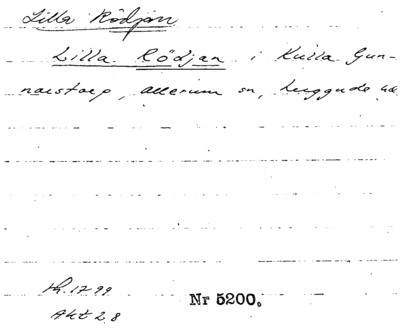 Lilla Rödjan
Lilla Rödjan i Kulla Gun-
narstorp, Allerum sn, Luggude hd
H. 1799
Akt 28
Nr 5200.